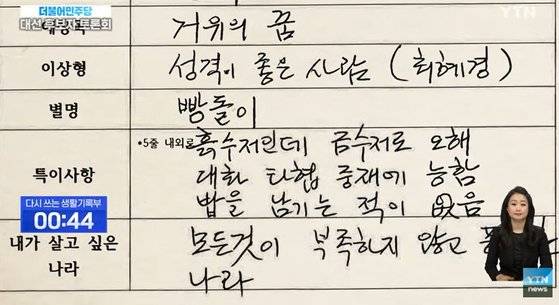 더불어민주당
대선 후보자 토론회
YTN
거위의 꿈
이상형
성격이 좋은 사람 (최혜경)
별명
빵돌이
특이사항
•5줄 내외로
흙수저인데 금수저로 오해
대화 타협 중재에 능함
밥을 남기는 적이 없음
다시 쓰는 생활기록부
00:44
내가 살고 싶은
나라
모든것이 부족하지 않고
나라
YTN
news